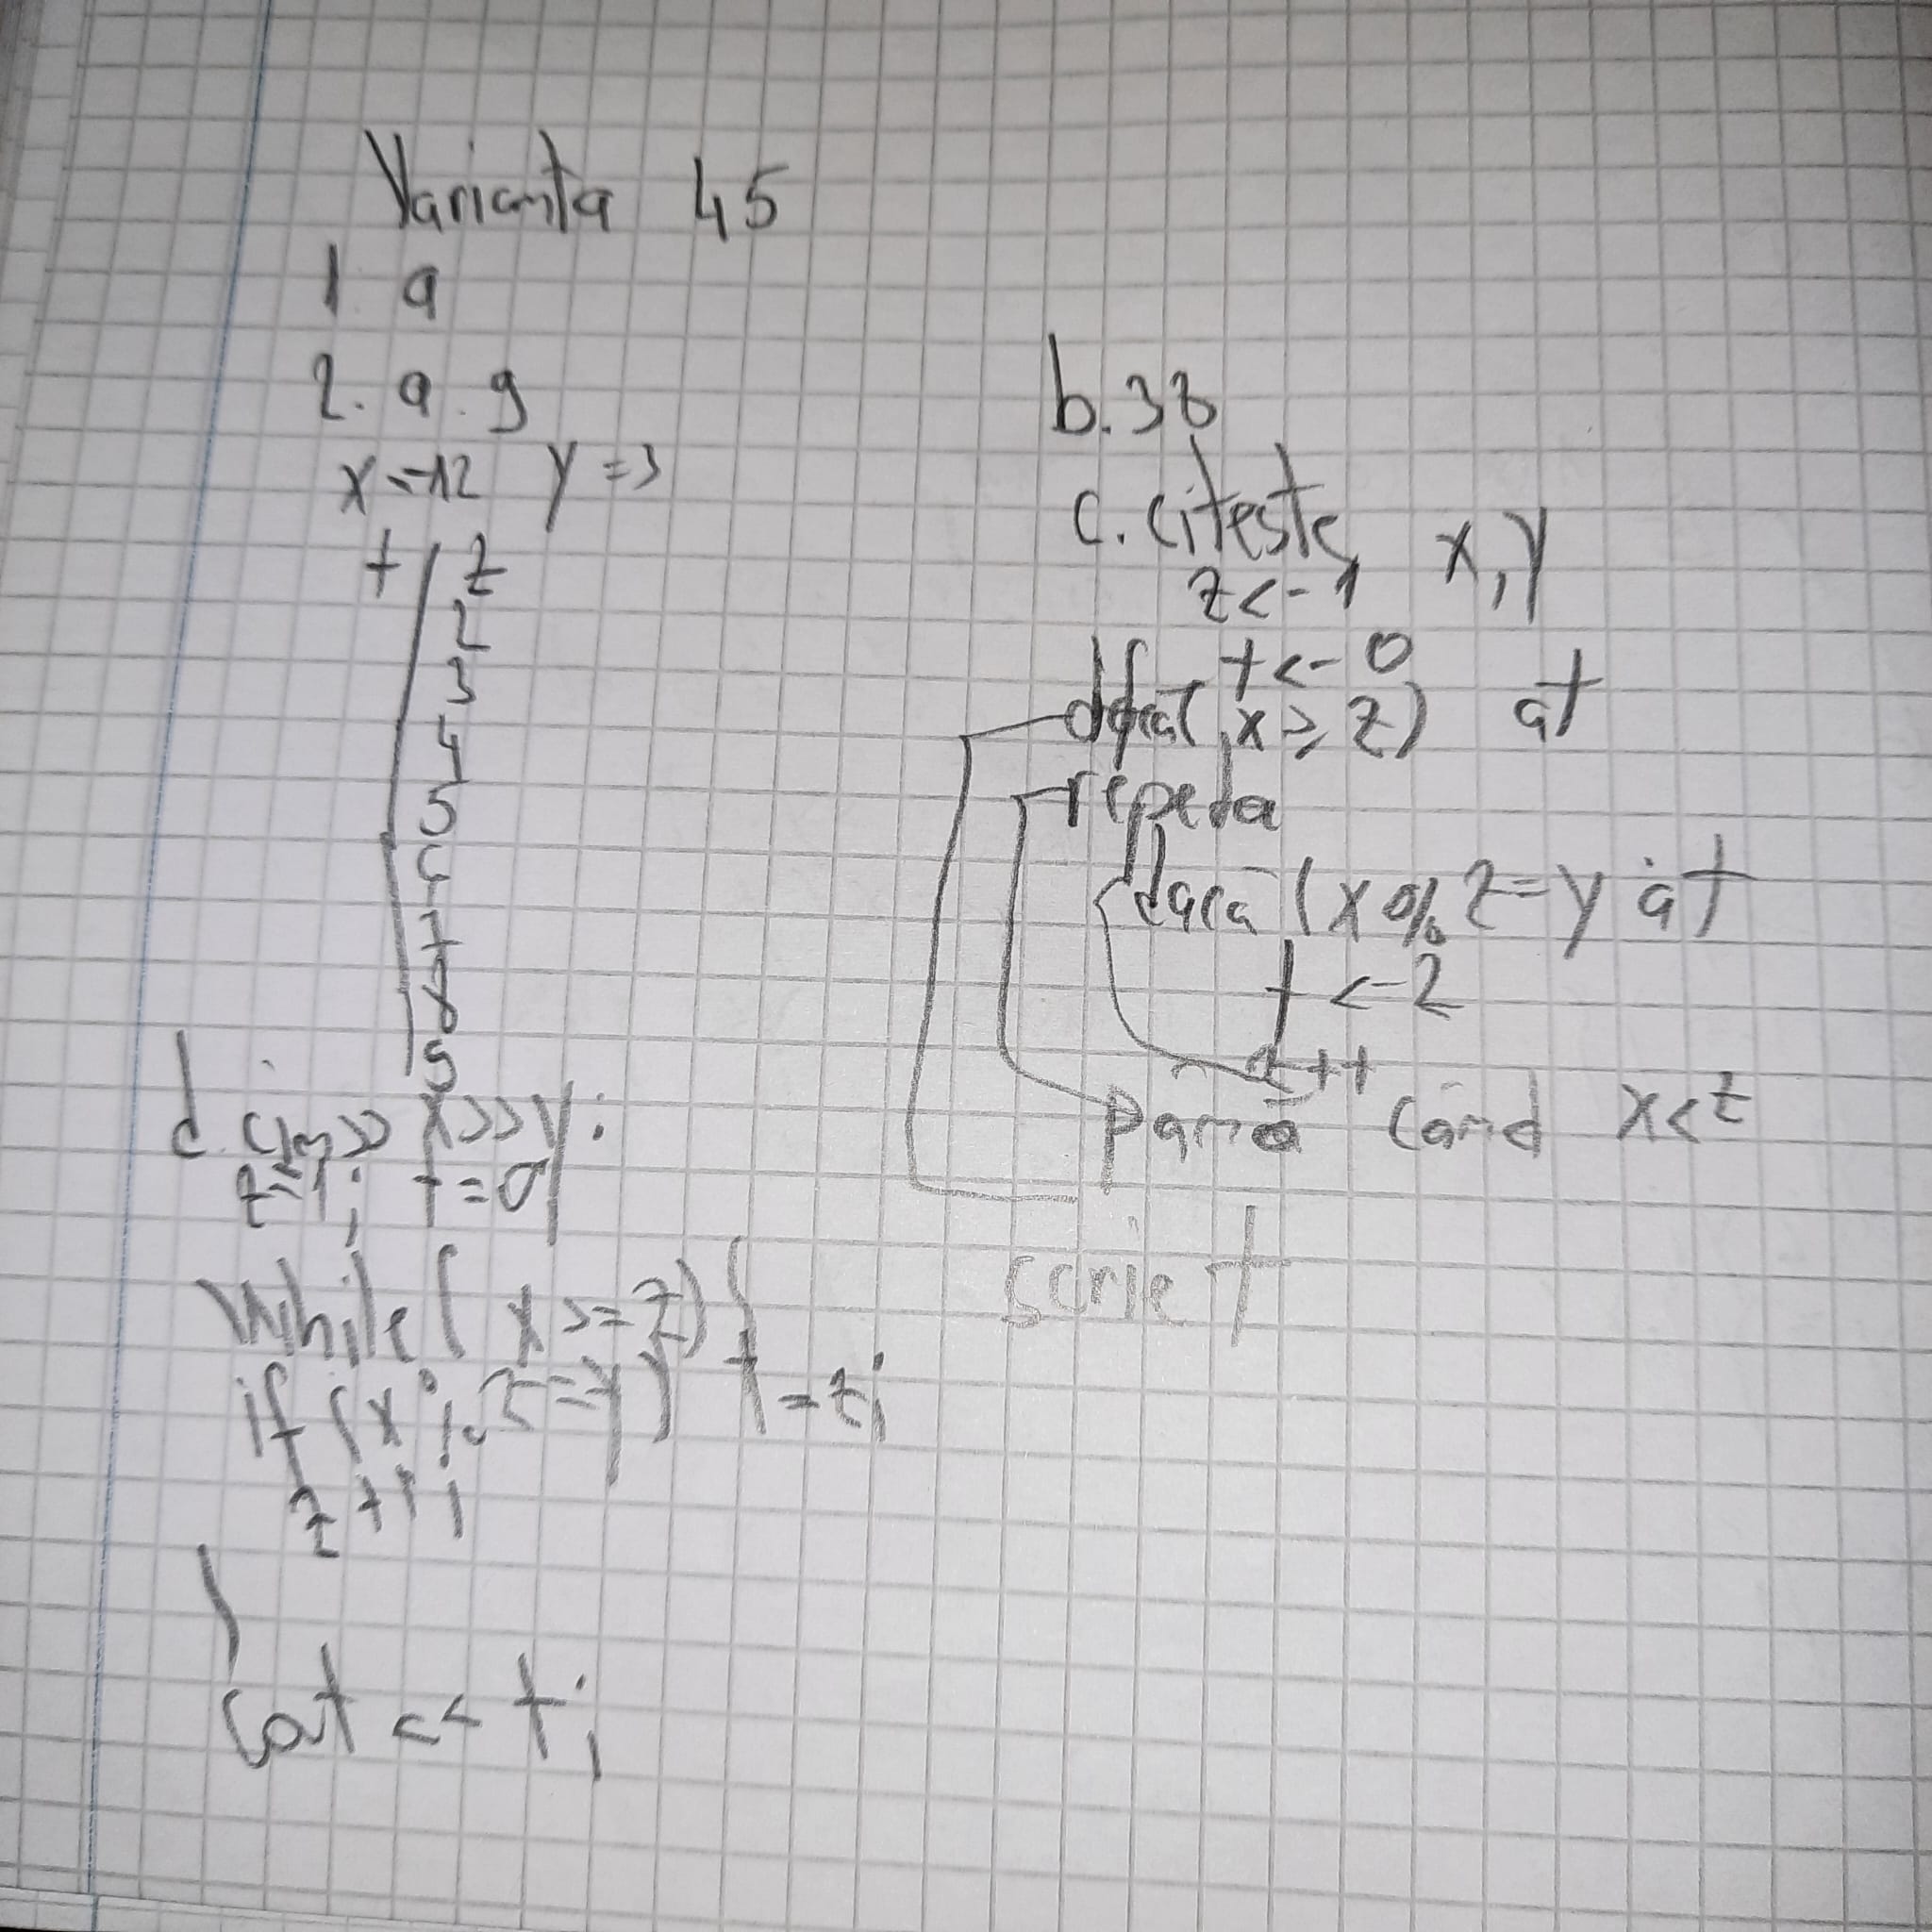 Varianta 45
1. a
2. a. 9
x=12 y=3
t | z
2
3
4
5
6
7
8
9
d. cin>>x>>y;
z=1; t=0;
While( x>=z){
if (x%z==y) t=z;
z++;
}
cout << t;
b. 38
c. citeste x, y
z<-1
t<-0
daca( x≥z) at
repeta
daca (x%z=y at
t<-z
z++
pana cand x<z
scrie t